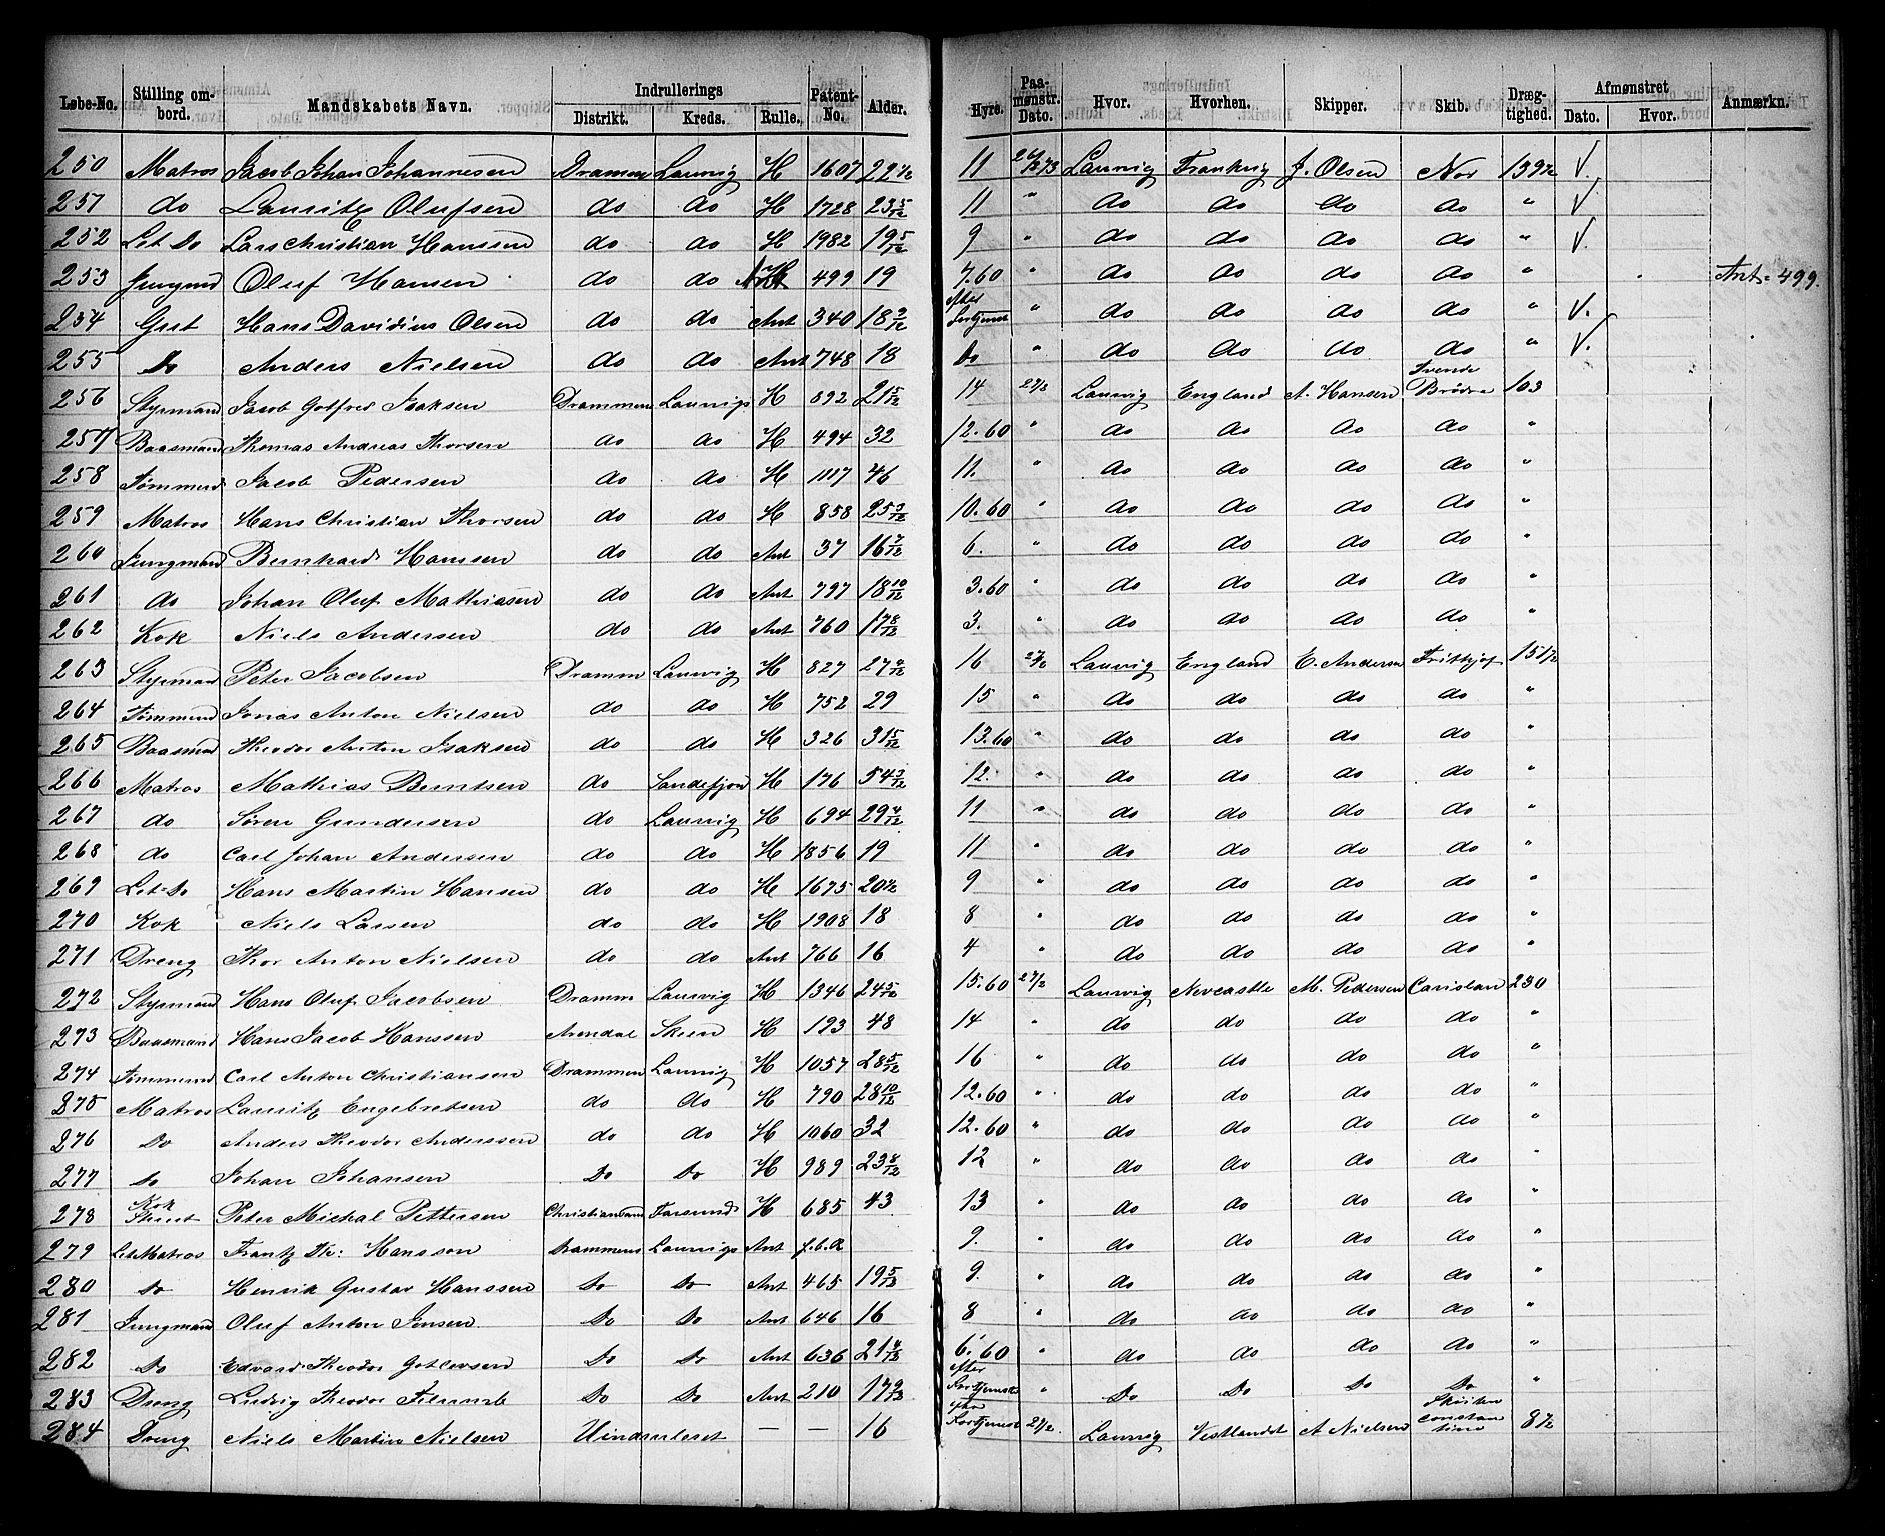 Løbe-No. | Stilling ombord. | Mandskabets Navn. | Indrullerings Distrikt. | Kreds. | Rulle. | Patent-No. | Alder. | Hyre. | Paamønstr. Dato. | Hvor. | Hvorhen. | Skipper. | Skib. | Drægtighed. | Afmønstret Dato. | Hvor. | Anmærkn.
250 Matros Jacob Johan Johannesen Drammen Laurvig H 1607 22 11 26/2 73 Laurvig Frankrig J. Olsen Nor 139½ V.
251 do Lauritz Olufsen do do H 1728 23 5/12 11 " do do do do " V
252 Let Do Lars Christian Hanssen do do H 1982 19 5/12 9 " do do do do " V.
253 Jungmd Oluf Hansen do do 499 19 7.60 " do do do do " Ant. 499.
254 Gut Hans Davidius Olsen do do Ant 340 18 efter Fortjenst " do do do do " V.
255 Do Anders Nielsen do do Ant 748 18 Do " do do do do " V.
256 Styrmand Jacob Gotfred Isaksen Drammen Laurvigs H 892 21 5/12 14 27/2 Laurvig England A. Hansen Tvende Brødre 163
257 Baasmand Thomas Andreas Thorsen do do H 494 32 12.60 " do do do do "
258 Tømmermd Jacob Pedersen do do H 1117 46 11. " do do do do "
259 Matros Hans Christian Thorsen do do H 858 25 10.60 " do do do do "
260 Jungmand Bernhard Hanssen do do Ant 37 16 7/12 6. " do do do do "
261 do Johan Oluf Mathiasen do do Ant 797 18 10/12 3.60 " do do do do "
262 Kok Niels Andersen do do Ant 760 17 8/12 3. " do do do do "
263 Styrmand Peter Jacobsen Dramm Laurvig H 827 27 16 27/2 Laurvig England E. Andersen Frithjof 151½
264 Tømmermd Jonas Anton Nielsen do do H 752 29 15 " do do do do "
265 Baasmand Theodor Anton Isaksen do do H 326 31 5/12 13.60 " do do do do "
266 Matros Mathias Berntsen do Sandefjord H 176 54 12. " do do do do "
267 do Søren Gundersen do Laurvig H 694 29 4/12 11 " do do do do "
268 do Carl Johan Andersen do do H 1856 19 11 " do do do do "
269 Let-Do Hans Martin Hansen do do H 1675 20 9 " do do do do "
270 Kok Niels Larsen do do H 1908 18 8 " do do do do "
271 Dreng Thor Anton Nielsen do do Ant 766 16 4 " do do do do "
272 Styrmand Hans Oluf Jacobsen Dramm Laurvig H 1346 24 5/12 15.60 27/2 Laurvig Newcastle M. Pedersen 230
273 Baasmand Hans Jacob Hanssen Arendal Skien H 193 48 14 " do do do do "
274 Tømmermd Carl Anton Christiansen Drammen Laurvig H 1057 28 5/12 16 " do do do do "
275 Matros Lauritz Engebretsen do do H 790 28 10/12 12.60 " do do do do "
276 Do Anders Theodor Anderssen do do H 1060 32 12.60 " do do do do "
277 Do Johan Johansen Do Do H 989 23 8/12 12 " do do do do "
278 Kok Stuert Peter Michal Pettersen Christiansand Farsund H 685 43 13 " do do do do "
279 Let Matros Frantz Hansson Drammens Laurvigs Ant 9. " do do do do "
280 Do Henrik Gustav Hanssen Do Do Ant 465 19 5/12 9. " do do do do "
281 Jungmand Oluf Anton Jensen Do Do Ant 646 16 8 " do do do do "
282 Do Edvard Theodor Gotlevsen Do Do Ant 636 21 4/12 6.60 " do do do do "
283 Dreng Ludvig Theodor Do Do Ant 210 17 9/12 efter Fortjenst " Do Do Do Do "
284 Dreng Niels Martin Nielsen Uindrulleret — — 16 efter Fortjenst 27/2 Laurvig Vestlandet A Nielsen Skøiten Constantine 8½